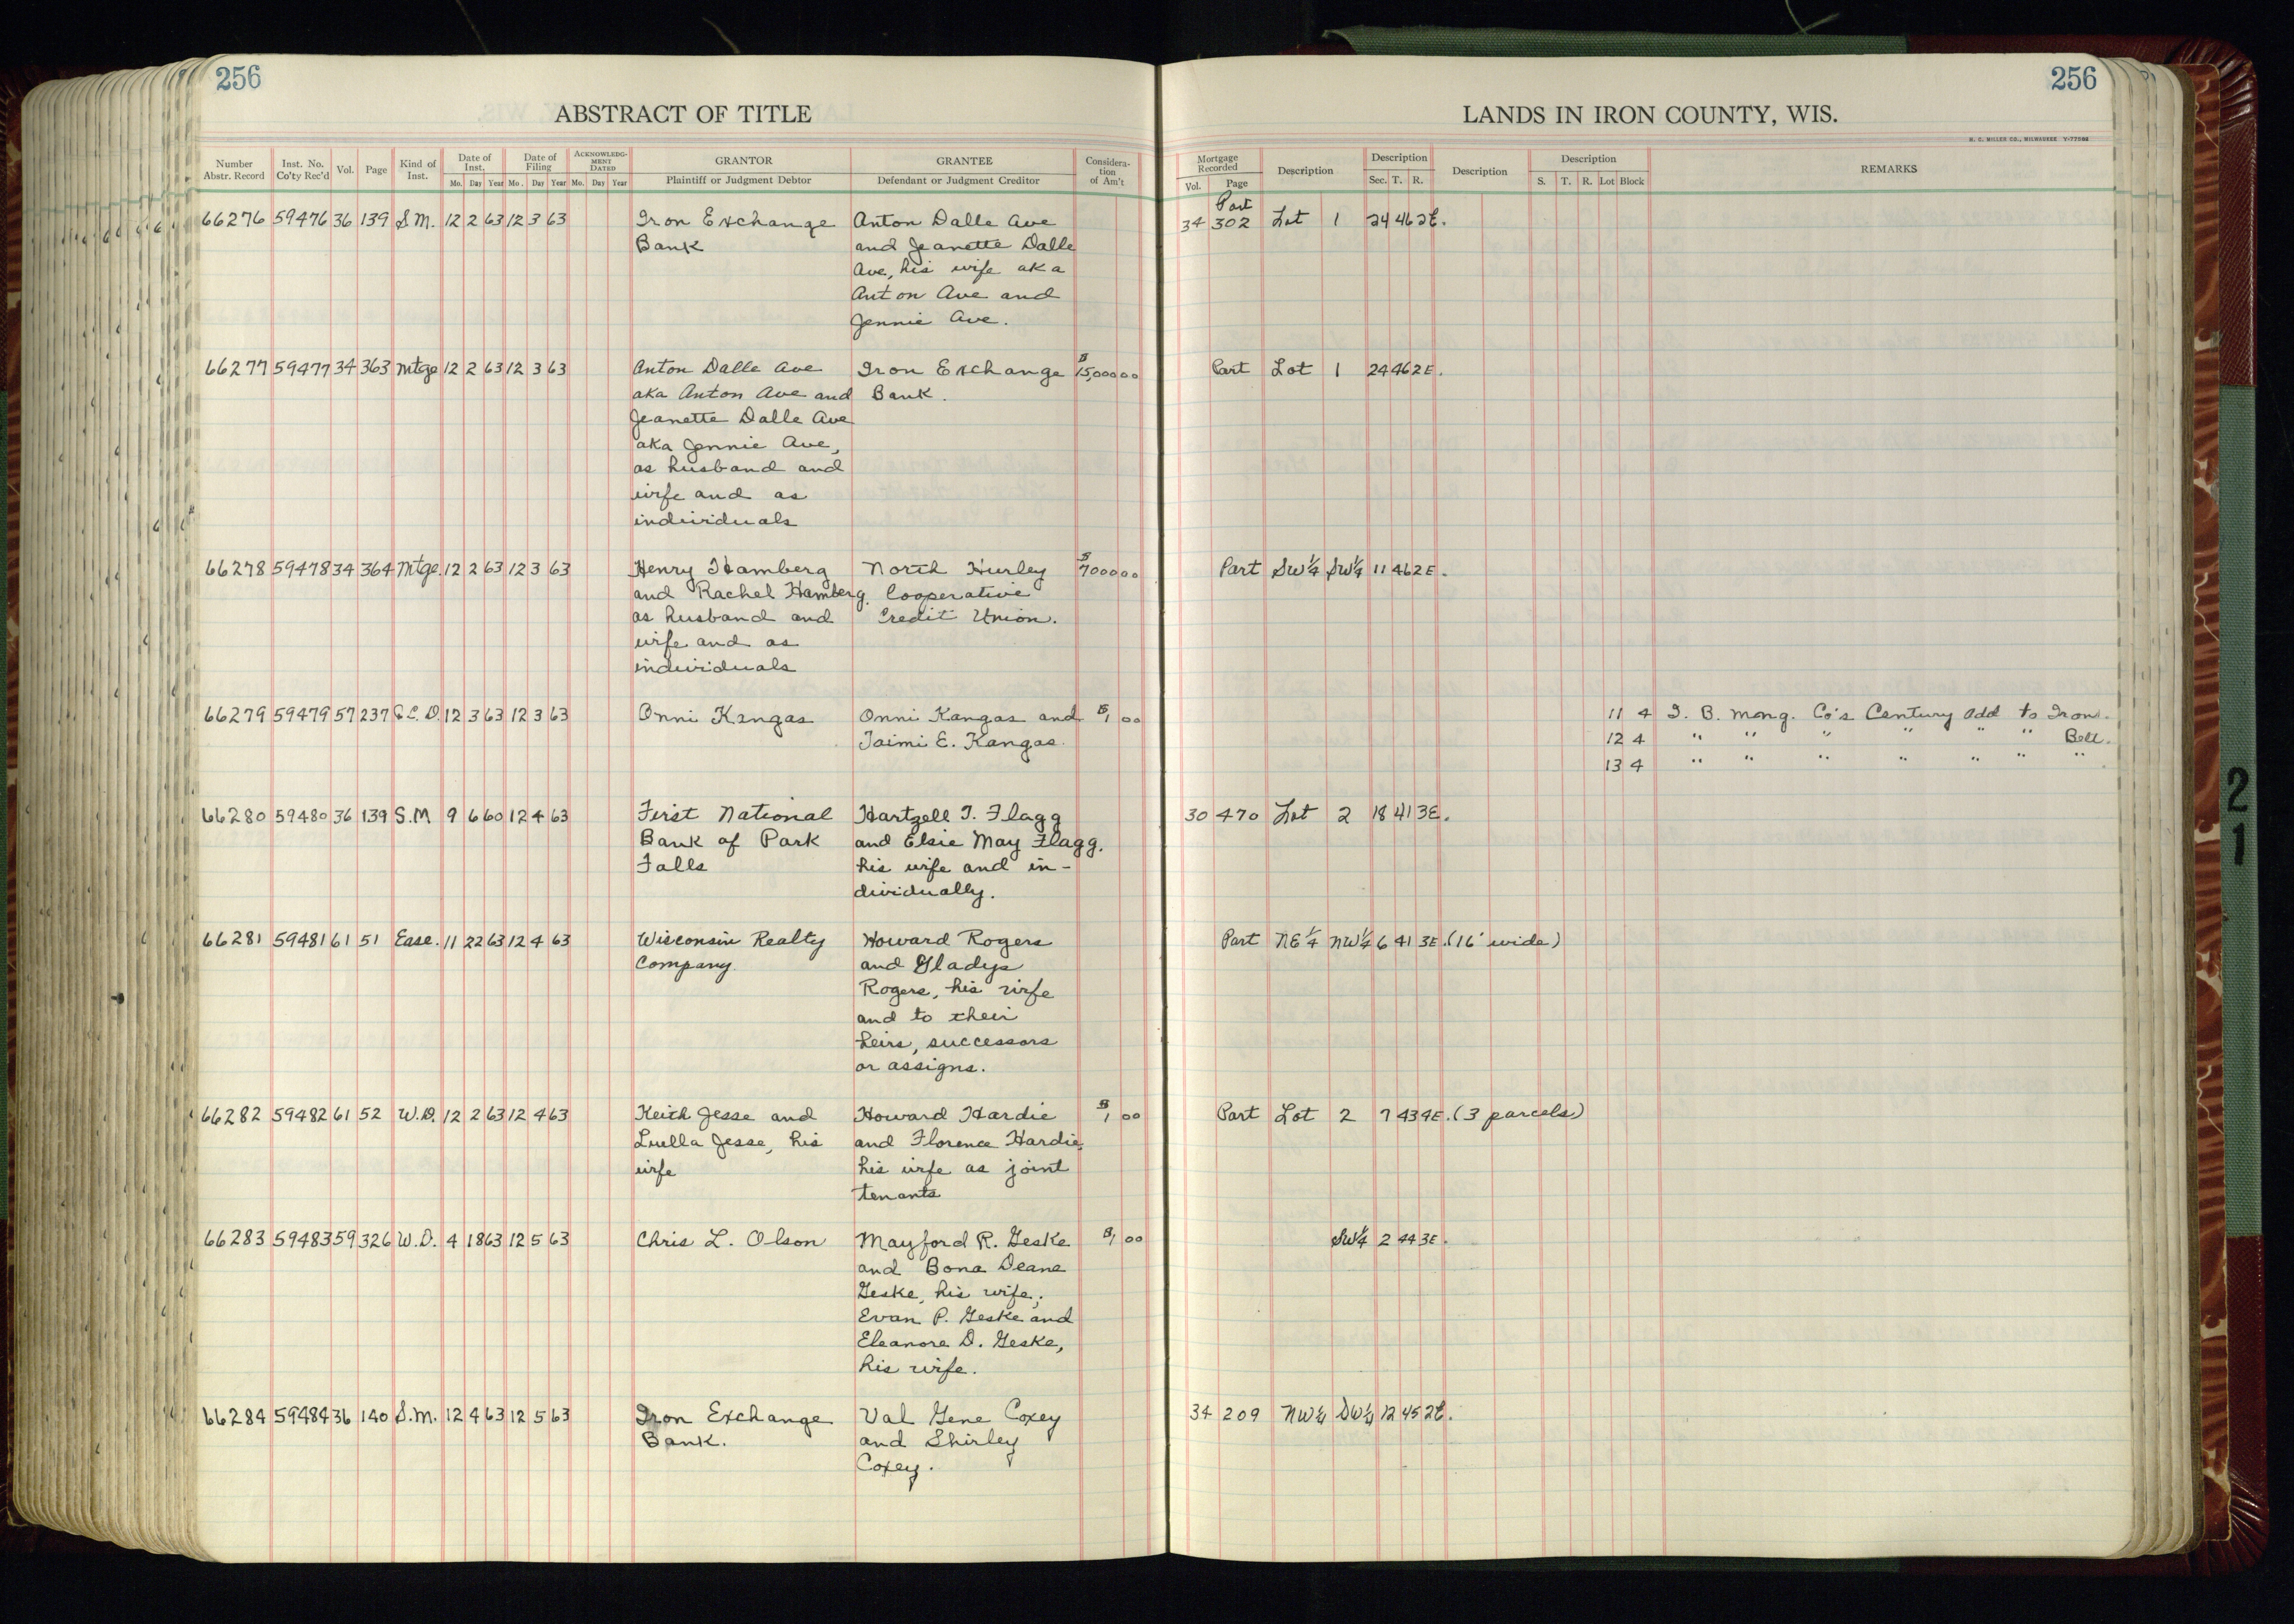 256
256
ABSTRACT OF TITLE
LANDS IN IRON COUNTY, WIS.
H. C. MILLER CO., MILWAUKEE
Number Abstr. Record | Inst. No. Co'ty Rec'd | Vol. | Page | Kind of Inst. | Date of Inst. Mo. Day Year | Date of Filing Mo. Day Year | ACKNOWLEDGMENT DATED Mo. Day Year | GRANTOR Plaintiff or Judgment Debtor | GRANTEE Defendant or Judgment Creditor | Consideration of Am't | Mortgage Recorded Vol. Page | Description | Description Sec. T. R. | Description | Description S. T. R. Lot Block | REMARKS
Part
66276 59476 36 139 S.M. 12 2 63 12 3 63 Iron Exchange Anton Dalle Ave 34 302 Lot 1 24 46 2E.
Bank and Jeanette Dalle
Ave, his wife aka
Anton Ave and
Jennie Ave.
66277 59477 34 363 Mtge 12 2 63 12 3 63 Anton Dalle Ave Iron Exchange $15,000 00 Part Lot 1 24 46 2E.
aka Anton Ave and Bank.
Jeanette Dalle Ave
aka Jennie Ave,
as husband and
wife and as
individuals
66278 59478 34 364 Mtge. 12 2 63 12 3 63 Henry Hamberg North Hurley $7000 00 Part SW¼ SW¼ 11 46 2E.
and Rachel Hamberg, Cooperative
as husband and Credit Union.
wife and as
individuals
66279 59479 57 237 Q.C.D. 12 3 63 12 3 63 Onni Kangas Onni Kangas and $1 00 11 4 I. B. Mong. Co's Century Add to Iron
Taimi E. Kangas. 12 4 " " " " " " Belt.
13 4 " " " " " " "
66280 59480 36 139 S.M 9 6 60 12 4 63 First National Hartzell T. Flagg 30 470 Lot 2 18 41 3E.
Bank of Park and Elsie May Flagg,
Falls his wife and in-
dividually.
66281 59481 61 51 Ease. 11 22 63 12 4 63 Wisconsin Realty Howard Rogers Part NE¼ NW¼ 6 41 3E. (16' wide)
Company and Gladys
Rogers, his wife
and to their
heirs, successors
or assigns.
66282 59482 61 52 W.D. 12 2 63 12 4 63 Keith Jesse and Howard Hardie $1 00 Part Lot 2 7 43 4E. (3 parcels)
Luella Jesse, his and Florence Hardie,
wife his wife as joint
tenants
66283 59483 59 326 W.D. 4 18 63 12 5 63 Chris L. Olson Mayford R. Geske $1 00 SW¼ 2 44 3E.
and Bona Deane
Geske, his wife;
Evan P. Geske and
Eleanore D. Geske,
his wife.
66284 59484 36 140 S.M. 12 4 63 12 5 63 Iron Exchange Val Gene Coxey 34 209 NW¼ SW¼ 12 45 2E.
Bank. and Shirley
Coxey.
21